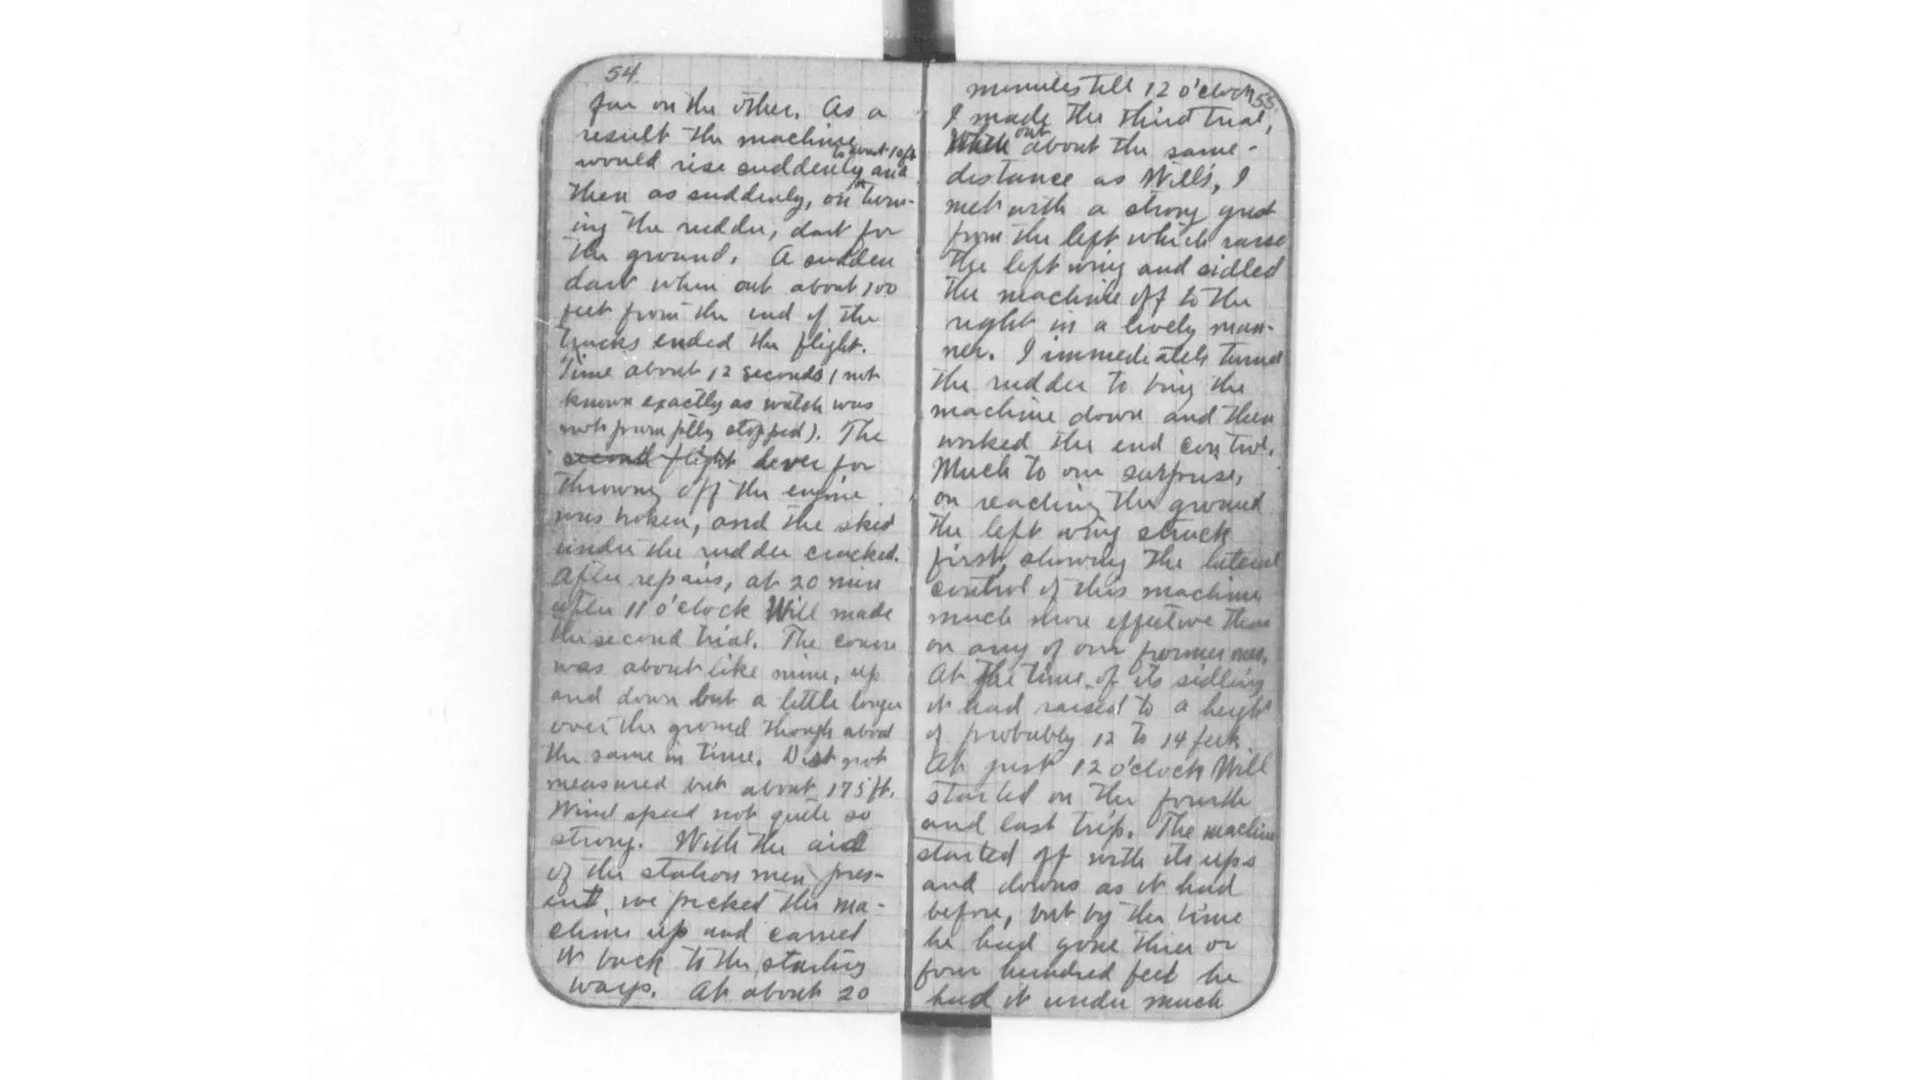 54.
far on the other. As a
result the machine
would rise suddenly to about 10 ft and
then as suddenly, on turn-
ing the rudder, dart for
the ground. A sudden
dart when out about 100
feet from the end of the
tracks ended the flight.
Time about 12 seconds (not
known exactly as watch was
not promptly stopped). The
second flight lever for
throwing off the engine
was broken, and the skid
under the rudder cracked.
After repairs, at 20 min
after 11 o'clock Will made
the second trial. The course
was about like mine, up
and down but a little longer
over the ground though about
the same in time. Dist not
measured but about 175 ft.
Wind speed not quite so
strong. With the aid
of the station men pres-
ent, we picked the ma-
chine up and carried
it back to the starting
ways. At about 20
55.
minutes till 12 o'clock
I made the third trial,
When out about the same
distance as Will's, I
met with a strong gust
from the left which raised
the left wing and sidled
the machine off to the
right in a lively man-
ner. I immediately turned
the rudder to bring the
machine down and then
worked the end control.
Much to our surprise,
on reaching the ground
the left wing struck
first, showing the lateral
control of this machine
much more effective than
on any of our former ones.
At the time of its sidling
it had raised to a height
of probably 12 to 14 feet.
At just 12 o'clock Will
started on the fourth
and last trip. The machine
started off with its ups
and downs as it had
before, but by the time
he had gone three or
four hundred feet he
had it under much